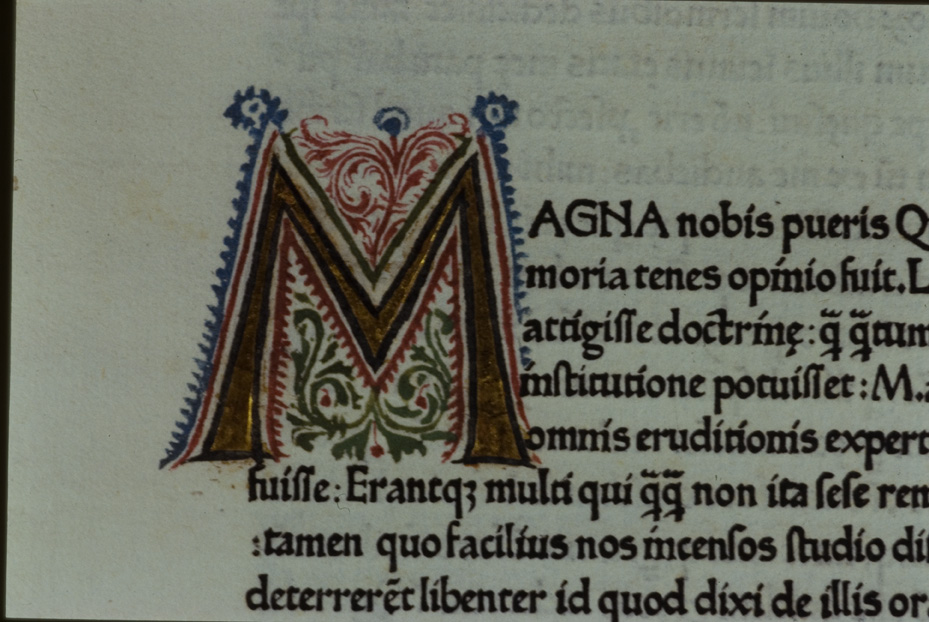 MAGNA nobis pueris Q
moria tenes opinio fuit. L
attigisse doctrinę: q̃ q̃tum
institutione potuisset: M.
omnis eruditionis expert
fuisse: Erantq; multi qui q̃q̃ non ita sese rem
:tamen quo facilius nos incensos studio di
deterrerẽt libenter id quod dixi de illis or